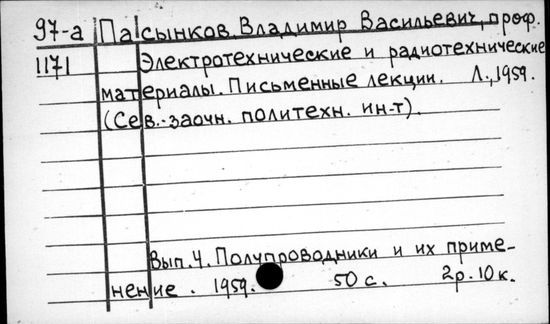 97-а Пасынков, Владимир Васильевич, проф.
1171 Электротехнические и радиотехнические
материалы. Письменные лекции. Л., 1959.
(Сев.-заочн. политехн. ин-т).
Вып. 4. Полупроводники и их приме-
нение. 1959. 50 с. 2р. 10к.